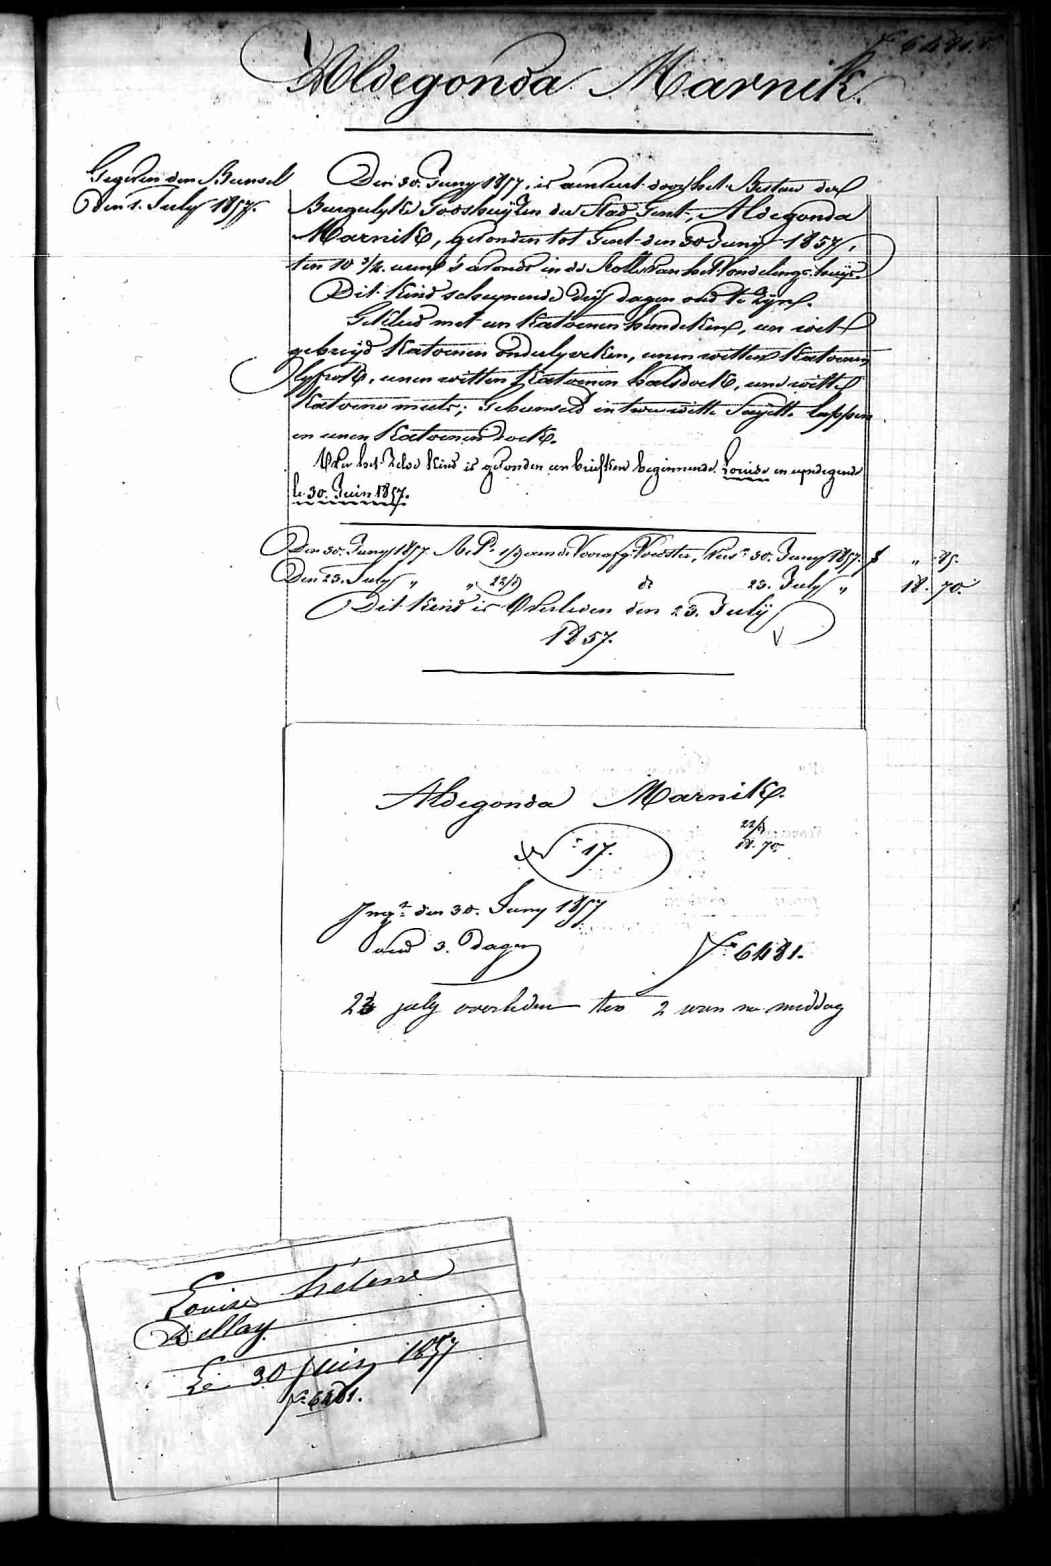 Fo 6481.
Aldegonda Marnik.
Gegeven den Bunsel
Den 1. July 1857.
Den 30. Juny 1857, is aenveirt door het Bestuer der
Burgerlyke Godshuyzen der Stad Gent, Aldegonda
Marnik, gevonden tot Gent den 30 Juny 1857,
ten 10 3/4 uren 's avonds in de Rolle van het Vondelingshuys.
Dit kind schynende dry dagen oud te zyn.
Gekleed met een katoenen hemdeken, een wit
gebreyd katoenen onderlyveken, eenen witten katoenen
lyfrok, eenen witten katoenen halsdoek, eene witte
katoene muts; Gebunseld in twee witte lappen
en eenen katoenen doek.
Over het zelve kind is gevonden een briefken beginnende Louise en eyndigende
le 30. Juin 1857.
Den 30. Juny 1857. 30. Juny 1857. f „ 25.
Den 23. July „ „ 22/9 do 23. July „ 18. 70.
Dit kind is Overleden den 23. July
1857.
Aldegonda Marnik.
22/9
18. 70
No 17.
Ingt den 30. Juny 1857
oud 3. Dagen
Fo 6481.
23 july overleden ten 2 uren na middag
Louise hélène
Dellay
Le 30 juin 1857
Fo 6481.